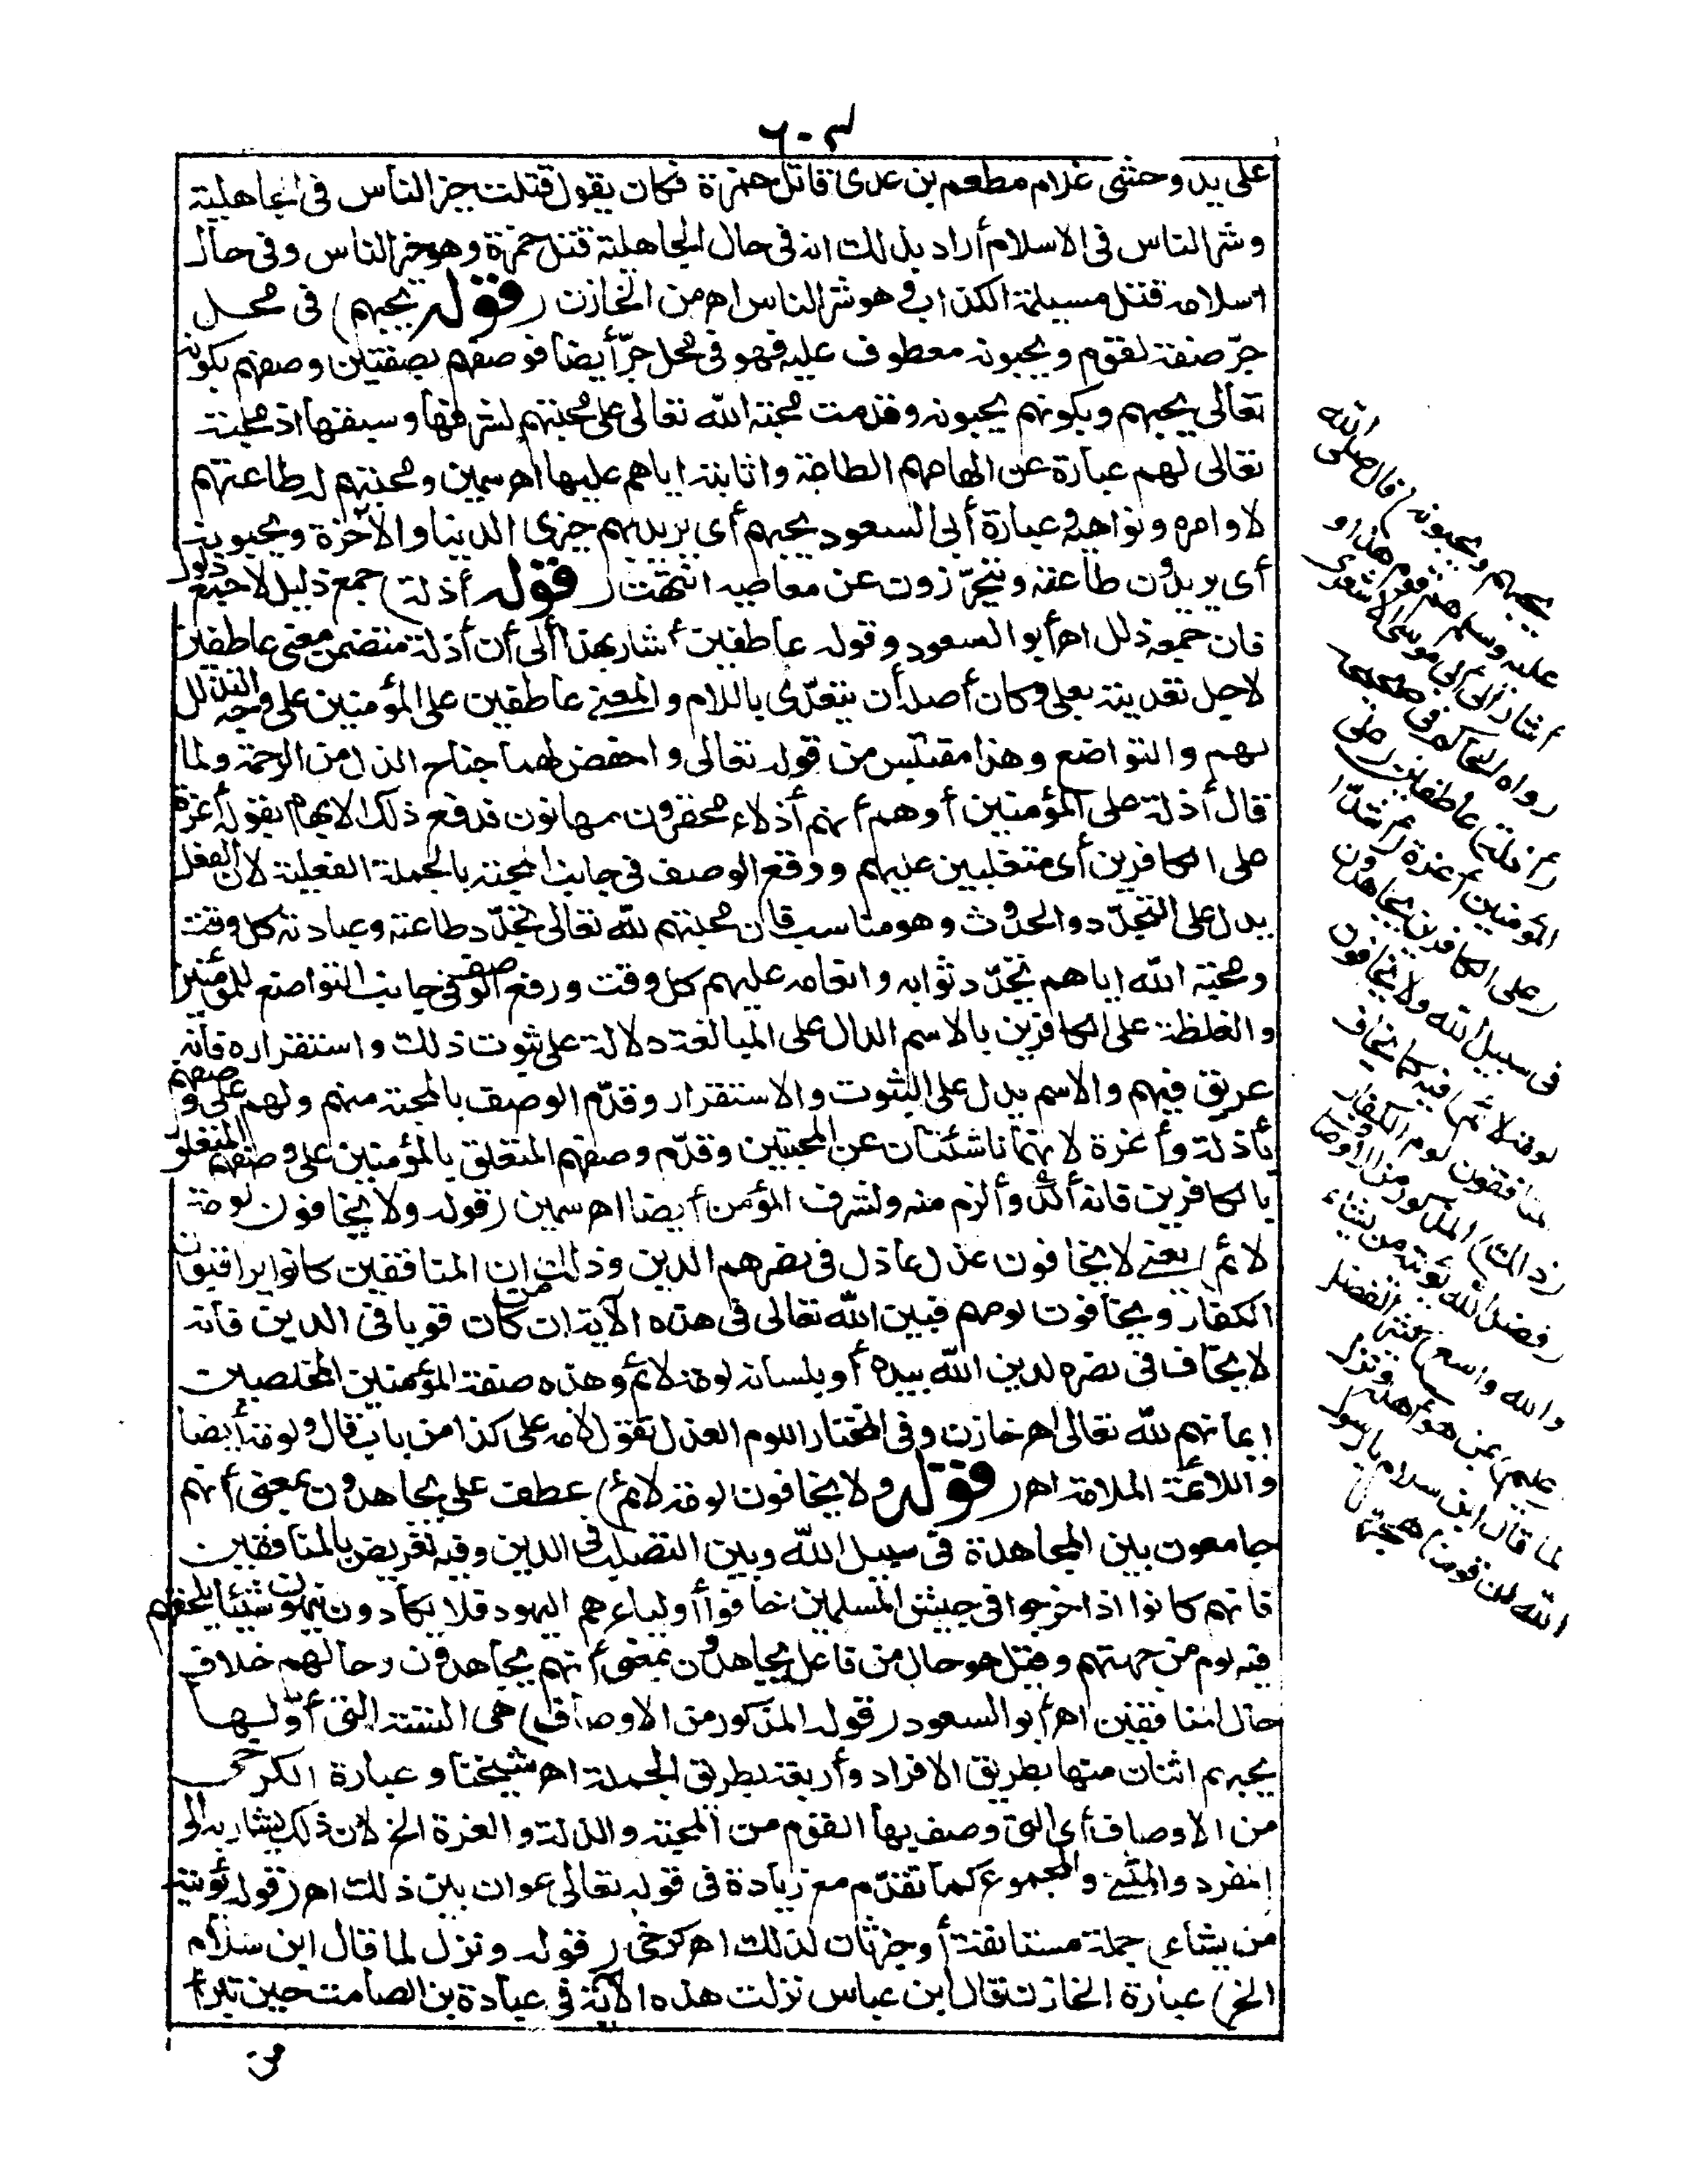 ٦٠٣
على يد وحشى غلام مطعم بن عدى قاتل حمزة فكان يقول قتلت خير الناس فى الجاهلية
وشر الناس فى الاسلام أراد بذلك انه فى حال الجاهلية قتل حمزة وهو خير الناس وفى حال
اسلامه قتل مسيلمة الكذاب وهو شر الناس اه من الخازن (قوله يحبهم) فى محل
جرّ صفة لقوم ويحبونه معطوف عليه فهو فى محل جرّ أيضا فوصفهم بصفتين وصفهم بكونه
تعالى يحبهم وبكونهم يحبونه وقدمت محبة الله تعالى على محبتهم لشرفها وسبقها اذ محبته
تعالى لهم عبارة عن الهامهم الطاعة واثابته اياهم عليها اه سمين ومحبتهم له طاعتهم
لاوامره ونواهيه وعبارة أبى السعود يحبهم أى يريد بهم خيرى الدنيا والآخرة ويحبونه
أى يريدون طاعته ويتحرّزون عن معاصيه انتهت (قوله أذلة) جمع ذليل لا جمع ذلول
فان جمعه ذلل اه أبو السعود وقوله عاطفين أشار بهذا الى أن أذلة متضمن معنى عاطفين
لاجل تعديته بعلى وكان أصله أن يتعدّى باللام والمعنى عاطفين على المؤمنين على وجه التذلل
لهم والتواضع وهذا مقتبس من قوله تعالى واخفض لهما جناح الذل من الرحمة ولما
قال أذلة على المؤمنين أوهم أنهم أذلاء محقرون مهانون فدفع ذلك الايهام بقوله أعزة
على الكافرين أى متغلبين عليهم ووقع الوصف فى جانب المحبة بالجملة الفعلية لان الفعل
يدل على التجدّد والحدوث وهو مناسب فان محبتهم لله تعالى تجدّد طاعته وعبادته كل وقت
ومحبة الله اياهم تجدّد ثوابه وانعامه عليهم كل وقت ورفع الوصف فى جانب التواضع للمؤمنين
والغلظة على الكافرين بالاسم الدال على المبالغة دلالة على ثبوت ذلك واستقراره فانه
عريق فيهم والاسم يدل على الثبوت والاستقرار وقدّم الوصف بالمحبة منهم ولهم على وصفهم
بأذلة وأعزة لانهما ناشئتان عن المحبتين وقدّم وصفهم المتعلق بالمؤمنين على وصفهم المتعلق
بالكافرين فانه آكد وألزم منه ولشرف المؤمن أيضا اه سمين (قوله ولا يخافون لومة
لائم) يعنى لا يخافون عذل عاذل فى نصرهم الدين وذلك ان المنافقين كانوا يراقبون
الكفار ويخافون لومهم فبين الله تعالى فى هذه الآية ان من كان قويا فى الدين فانه
لا يخاف فى نصره لدين الله بيده أو بلسانه لومة لائم وهذه صفة المؤمنين المخلصين
ايمانهم لله تعالى اه خازن وفى المختار اللوم العذل تقول لامه على كذا من باب قال ولومة أيضا
واللائمة الملامة اه (قوله ولا يخافون لومة لائم) عطف على يجاهدون بمعنى أنهم
جامعون بين المجاهدة فى سبيل الله وبين التصلب فى الدين وفيه تعريض بالمنافقين
فانهم كانوا اذا خرجوا فى جيش المسلمين خافوا أولياءهم اليهود فلا يكادون يعملون شيئا يلحقهم
فيه لوم من جهتهم وقيل هو حال من فاعل يجاهدون بمعنى أنهم يجاهدون وحالهم خلاف
حال المنافقين اه أبو السعود (قوله المذكور من الاوصاف) هى الستة التى أوّلها
يحبهم اثنان منها بطريق الافراد وأربعة بطريق الجملة اه شيخنا وعبارة الكرخى
من الاوصاف أى التى وصف بها القوم من المحبة والذلة والعزة الخ لان ذلك يشار به الى
المفرد والمثنى والمجموع كما تقدّم مع زيادة فى قوله تعالى عوان بين ذلك اه (قوله يؤتيه
من يشاء) جملة مستأنفة أو خبر ثان لذلك اه كرخى (قوله ونزل لما قال ابن سلام
الخ) عبارة الخازن قال ابن عباس نزلت هذه الآية فى عبادة بن الصامت حين تبرأ
من
يحبهم ويحبونه) قال صلى الله
عليه وسلم هم قوم هذا و
أشار الى أبى موسى الاشعرى
رواه الحاكم فى صحيحه
(أذلة) عاطفين (على
المؤمنين أعزة) أشداء
(على الكافرين يجاهدون
فى سبيل الله ولا يخافون
لومة لائم) فيه كما يخاف
المنافقون لوم الكفار
(ذلك) المذكور من الاوصاف
(فضل الله يؤتيه من يشاء
والله واسع) كثير الفضل
(عليم) بمن هو أهله ونزل
لما قال ابن سلام يا رسول
الله ان قومنا هجرونا